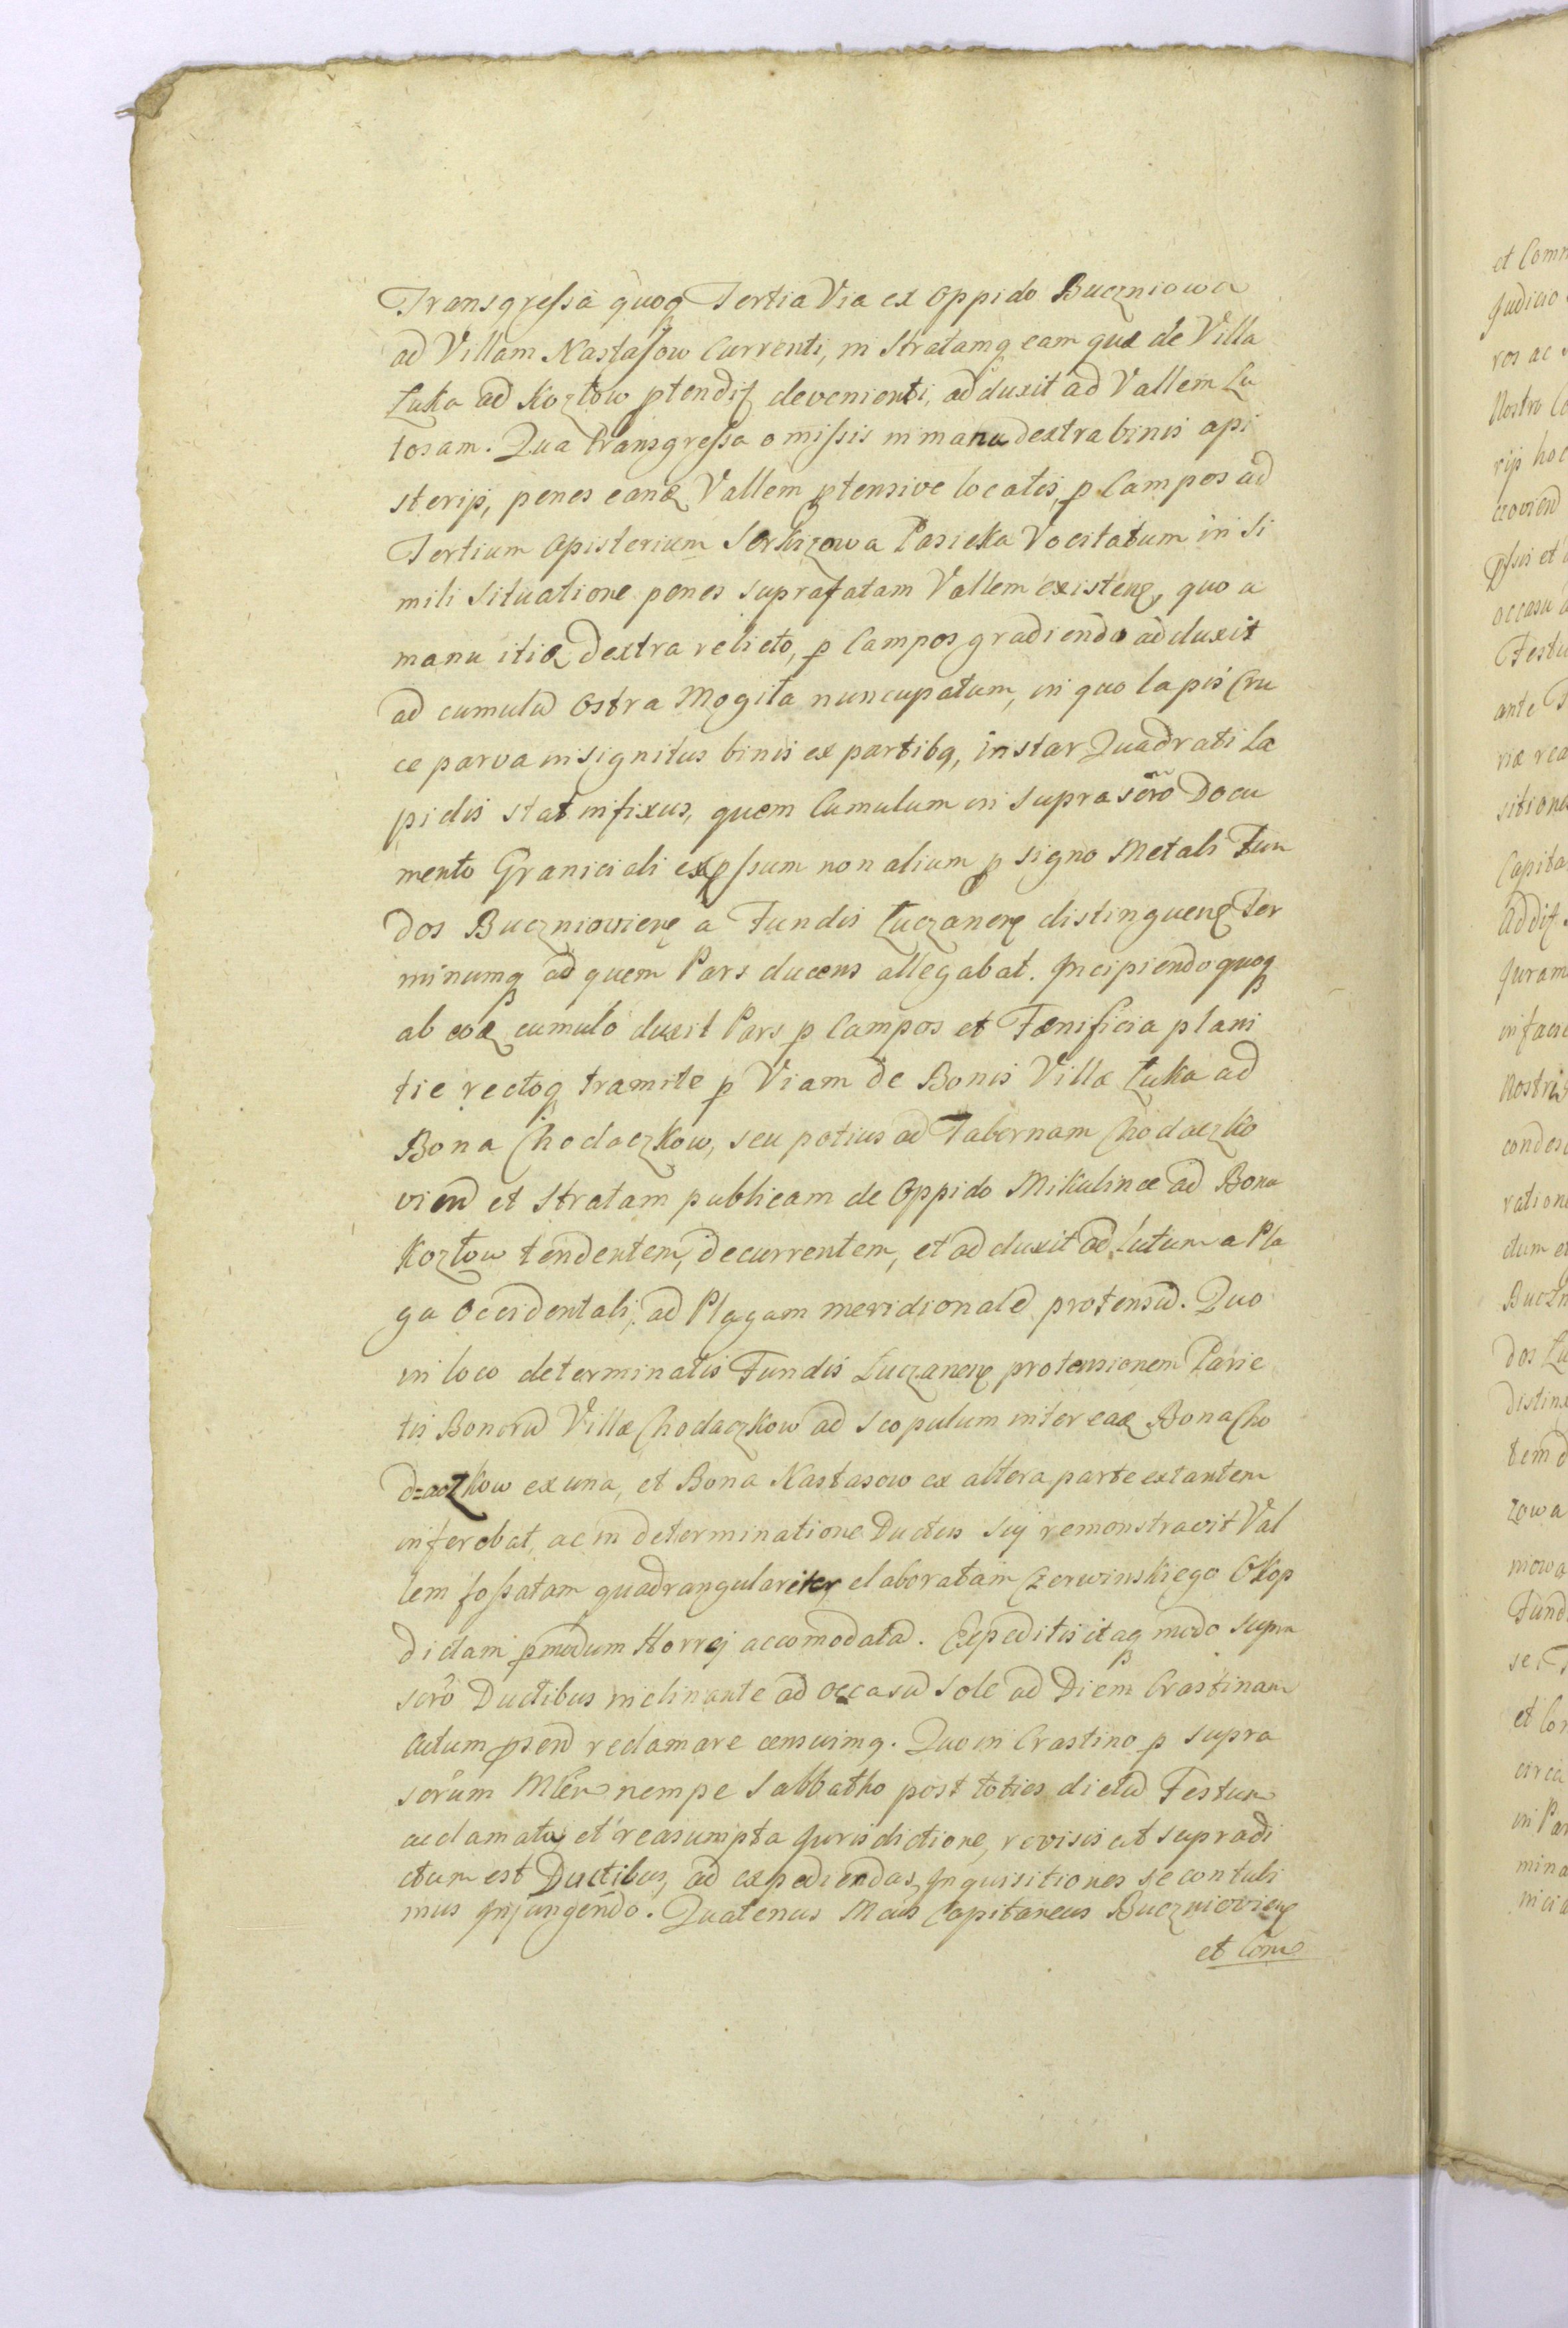 Transgressa quoq Tertia Via ex Oppido Buczniowa
ad Villam Nastasow Currenti, in Stratamq eam quæ de Villa
Łuka ad Kozłow ptendit devenienti, adduxit ad Vallem Lu
tosam. Qua transgressa omissis in manu dextra binis api
sterijs, penes eand Vallem ptensive locatis, p Campos ad
Tertium Apisterium Serkizowa Pasieka Vocitatum in Si
mili Situatione penes suprafatam Vallem existens, quo a
manu itid dextra relicto, p Campos gradiendo adduxit
ad cumulū Ostra Mogiła nuncupatum, in quo lapis Cru
ce parva insignitus binis ex partibq, instar Quadrati La
pidis stat infixus, quem Cumulum in suprascro Docu
mento Graniciali expssum non alium p signo Metali Fun
dos Buczniowien a Fundis Łuczanen distinguen Ter
minumq ad quem Pars ducens allegabat. Incipiendo quoq
ab eod cumulo duxit Pars p Campos et Fænificia plani
tie rectoq tramite p Viam de Bonis Villæ Łuka ad
Bona Chodaczkow, seu potius ad Tabernam Chodaczko
vien et Stratam publicam de Oppido Mikulince ad Bona
Kozłow tendentem, decurrentem, et adduxit ad Lutum a Pla
ga Occidentali, ad Plagam meridionalē protensū. Quo
in loco determinatis Fundis Łuczanen protensionem Parie
tis Bonorū Villæ Chodaczkow ad scopulum inter ead Bona Cho
d=aczkow ex una, et Bona Nastasow ex altera parte extantem
inferebat, ac in determinatione Ductus sui remonstravit Val
lem fossatam quadrangulariter elaboratam Czerwinskiego Okop
dictam pmodum Horrej accomodatā. Expeditis itaq modo supra
scro Ductibus inclinante ad occasū Sole ad Diem Crastinam
Actum psen reclamare censuimq. Quo in Crastino p supra
scrum Mlēr nempe Sabbatho post toties dictū Festum
acclamata et reasumpta Jurisdictione, revisis ut supradi
ctum est Ductibus, ad expediendas Inquisitiones se contuli
mus Injungendo. Quatenus Mcus Capitaneus Buczniovien
et Com